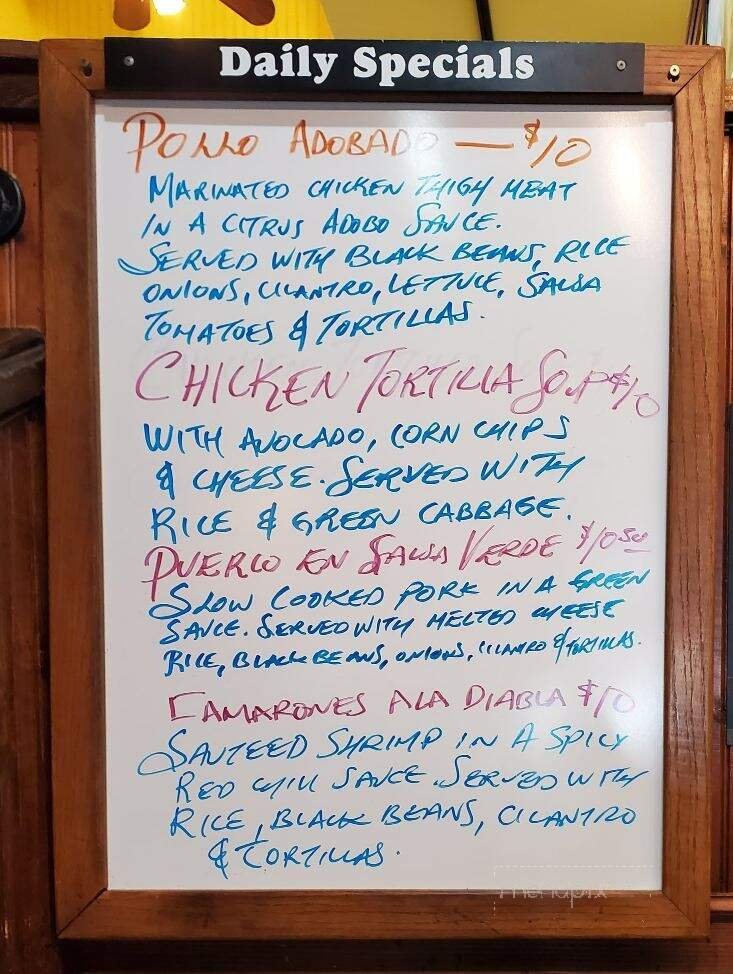 Daily Specials
POLLO ADOBADO — $10
MARINATED CHICKEN THIGH MEAT
IN A CITRUS ADOBO SAUCE.
SERVED WITH BLACK BEANS, RICE
ONIONS, CILANTRO, LETTUCE, SALSA
TOMATOES & TORTILLAS.
CHICKEN TORTILLA SOUP $10
WITH AVOCADO, CORN CHIPS
& CHEESE. SERVED WITH
RICE & GREEN CABBAGE.
PUERCO EN SALSA VERDE $10.50
SLOW COOKED PORK IN A GREEN
SAUCE. SERVED WITH MELTED CHEESE
RICE, BLACK BEANS, ONIONS, CILANTRO & TORTILLAS.
CAMARONES A LA DIABLA $10
SAUTEED SHRIMP IN A SPICY
RED CHILI SAUCE. SERVED WITH
RICE, BLACK BEANS, CILANTRO
& TORTILLAS.
menupix